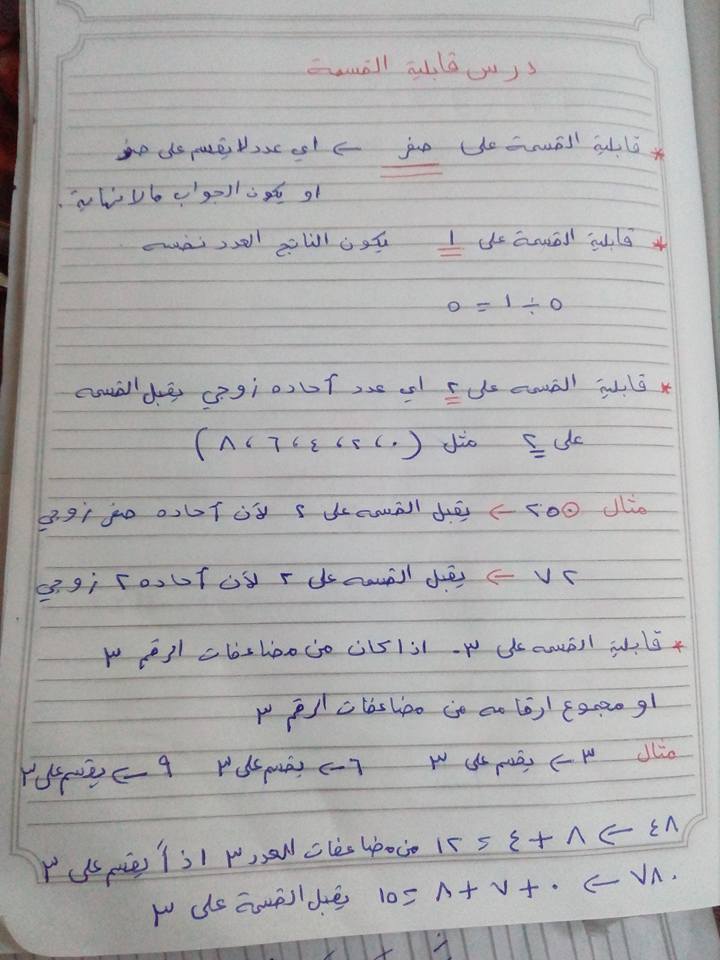 درس قابلية القسمة
* قابلية القسمة على صفر ← اي عدد لا يقسم على صفر
او يكون الجواب مالانهاية.
* قابلية القسمة على ١ يكون الناتج العدد نفسه
٥ ÷ ١ = ٥
* قابلية القسمه على ٢ اي عدد آحاده زوجي يقبل القسمه
على ٢ مثل (٠، ٢، ٤، ٦، ٨)
مثال ٢٥٠ ← يقبل القسمه على ٢ لأن آحاده صفر زوجي
٧٢ ← يقبل القسمه على ٢ لأن آحاده ٢ زوجي
* قابلية القسمه على ٣. اذا كان من مضاعفات الرقم ٣
او مجموع ارقامه من مضاعفات الرقم ٣
مثال ٣ ← يقسم على ٣ ٦ ← يقسم على ٣ ٩ ← يقسم على ٣
٤٨ ← ٨ + ٤ = ١٢ من مضاعفات العدد ٣ اذاً يقسم على ٣
٧٨٠ ← ٠ + ٧ + ٨ = ١٥ يقبل القسمة على ٣